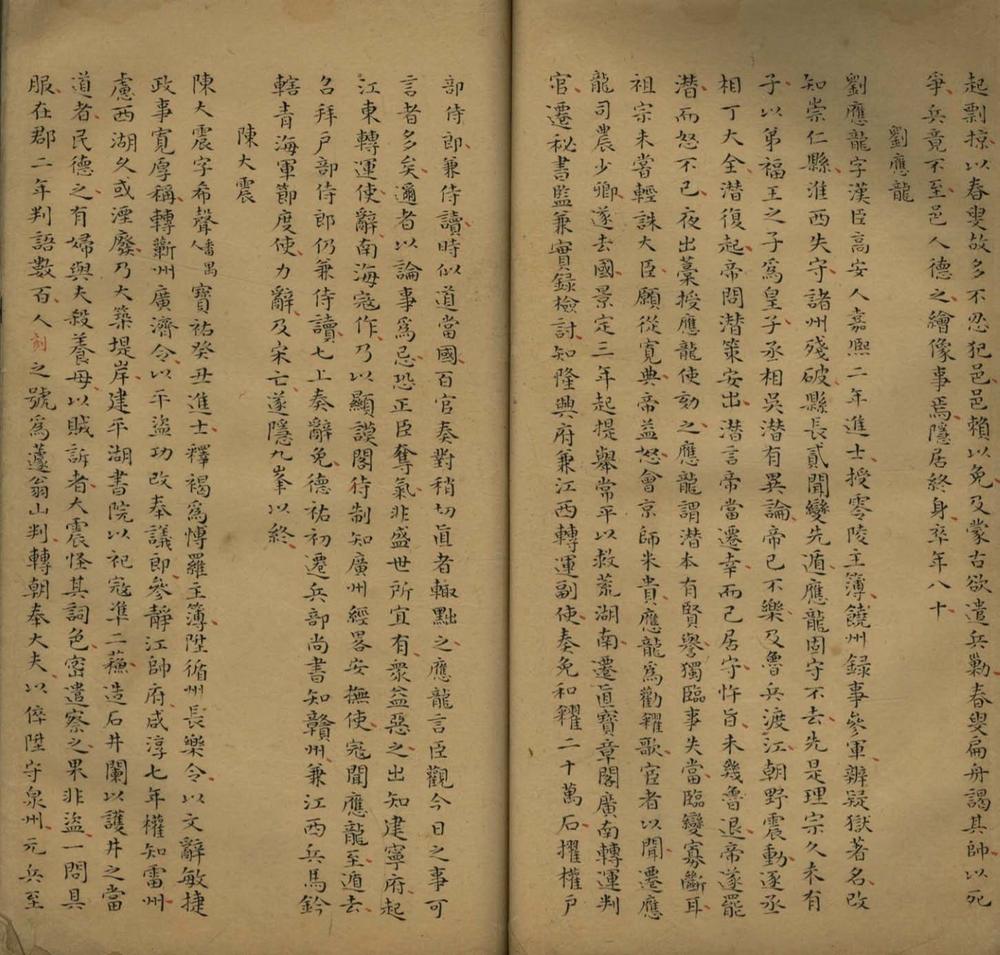 起剽掠以春叟故多不忍犯邑邑賴以免及蒙古欲遣兵勦春叟扁舟謁其帥以死
爭兵竟不至邑人德之繪像事焉隱居終身卒年八十
劉應龍
劉應龍字漢臣高安人嘉熙二年進士授零陵主簿饒州録事參軍辨疑獄著名改
知崇仁縣淮西失守諸州殘破縣長貳聞變先遁應龍固守不去先是理宗久未有
子以弟福王之子爲皇子丞相吳潛有異論帝已不樂及魯兵渡江朝野震動逐丞
相丁大全潛復起帝問潛策安出潛言帝當遷幸而己居守忤旨未幾魯退帝遂罷
潛而怒不已夜出藁授應龍使劾之應龍謂潛本有賢譽獨臨事失當臨變寡斷耳
祖宗未嘗輕誅大臣願從寬典帝益怒會京師米貴應龍爲勸糶歌宦者以聞遷應
龍司農少卿遂去國景定三年起提舉常平以救荒湖南遷直寶章閣廣南轉運判
官遷秘書監兼實録檢討知隆興府兼江西轉運副使奏免和糴二十萬石擢權戶
部侍郎兼侍讀時似道當國百官奏對稍切直者輙黜之應龍言臣觀今日之事可
言者多矣邇者以論事爲忌恐正臣奪氣非盛世所宜有衆益惡之出知建寧府起
江東轉運使辭南海寇作乃以顯謨閣待制知廣州經畧安撫使寇聞應龍至遁去
召拜戶部侍郎仍兼侍讀七上奏辭免德祐初遷兵部尚書知贛州兼江西兵馬鈐
轄青海軍節度使力辭及宋亡遂隱九峯以終
陳大震
陳大震字希聲番禺人寶祐癸丑進士釋褐爲愽羅主簿陞循州長樂令以文辭敏捷
政事寬厚稱轉蘄州廣濟令以平盜功改奉議郎參靜江帥府咸淳七年權知雷州
慮西湖久或湮廢乃大築堤岸建平湖書院以祀寇準二蘓造石井闌以護井之當
道者民德之有婦與夫殺養母以賊訴者大震怪其詞色密遣察之果非盜一問具
服在郡二年判語數百人刻之號爲蘧翁山判轉朝奉大夫以倅陞守泉州元兵至